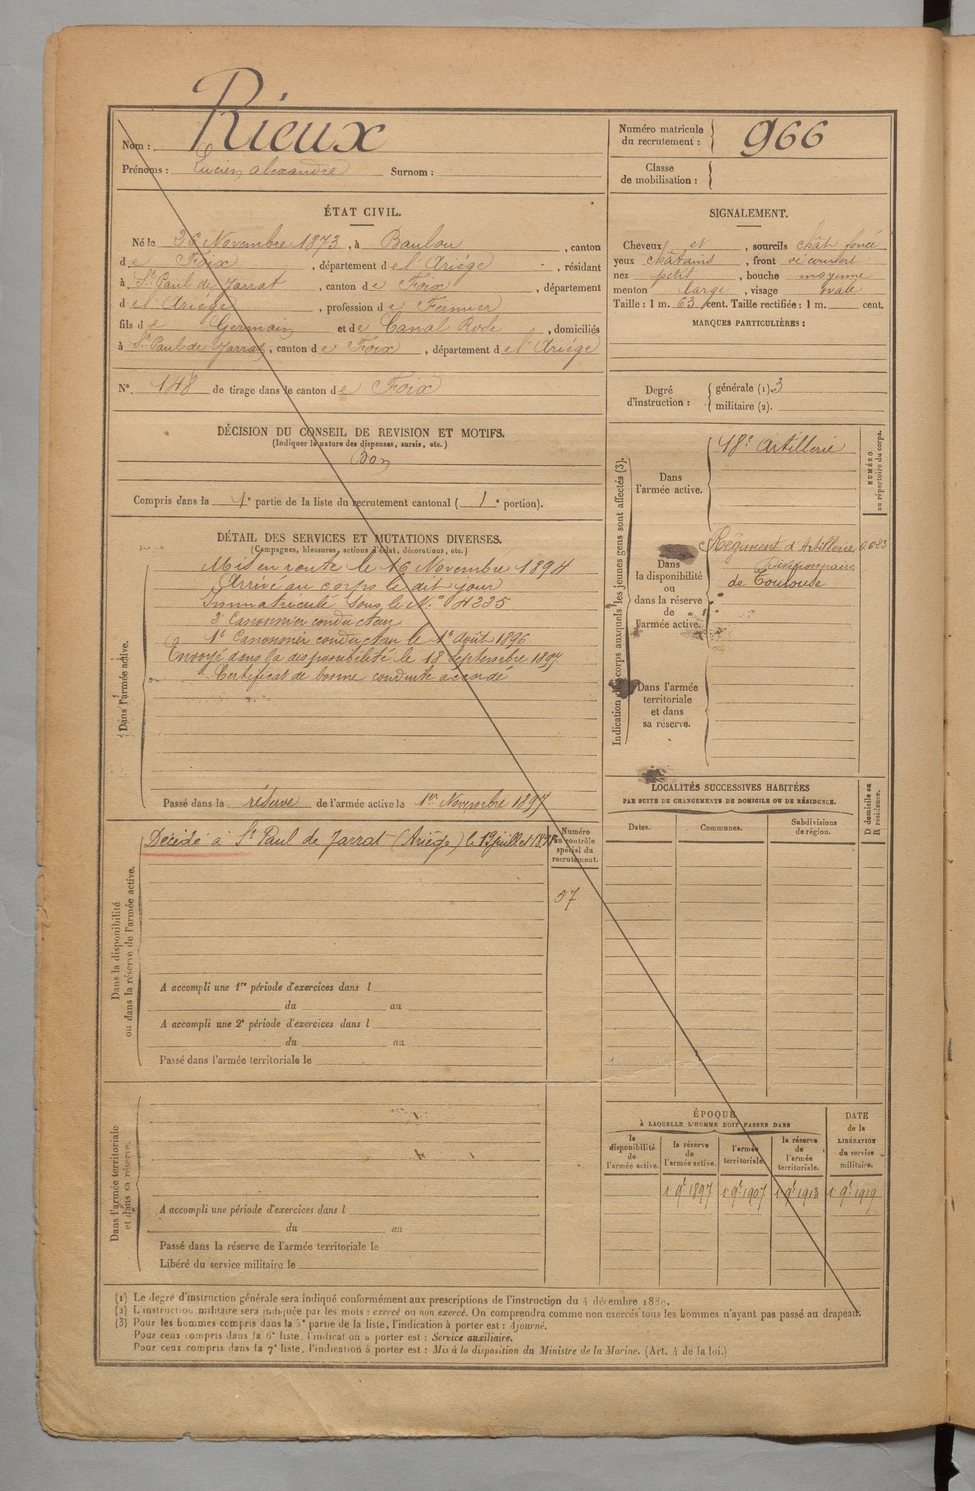 Nom : Rieux
Prénoms : Lucien Alexandre Surnom :
Numéro matricule du recrutement : 966
Classe de mobilisation :
ÉTAT CIVIL.
Né le 26 Novembre 1873, à Baulou, canton
de Foix, département de l'Ariège, résidant
à St Paul de Jarrat, canton de Foix, département
de l'Ariège, profession de Fermier
fils de Germain et de Canal Rose, domiciliés
à St Paul de Jarrat, canton de Foix, département de l'Ariège
N° 148 de tirage dans le canton de Foix
SIGNALEMENT.
Cheveux et, sourcils chât. foncé
yeux châtains, front découvert
nez petit, bouche moyenne
menton large, visage ovale
Taille : 1 m. 63 cent. Taille rectifiée : 1 m. cent.
MARQUES PARTICULIÈRES :
Degré d'instruction : générale (1). 3
militaire (2).
DÉCISION DU CONSEIL DE REVISION ET MOTIFS.
(Indiquer la nature des dispenses, sursis, etc.)
Bon
Compris dans la 1e partie de la liste du recrutement cantonal (1e portion).
DÉTAIL DES SERVICES ET MUTATIONS DIVERSES.
(Campagnes, blessures, actions d'éclat, décorations, etc.)
Dans l'armée active.
Mis en route le 16 Novembre 1894
Arrivé au corps le dit jour
Immatriculé sous le N° 4235
2e Canonnier conducteur
1e Canonnier conducteur le 1e Août 1896
Envoyé dans la disponibilité le 18 Septembre 1897
Certificat de bonne conduite accordé
Passé dans la réserve de l'armée active le 1er Novembre 1897
Indication des corps auxquels les jeunes gens sont affectés (3).
NUMÉRO au répertoire du corps.
Dans l'armée active.
18e Artillerie
Dans la disponibilité ou dans la réserve de l'armée active.
Régiment d'Artillerie
Divisionnaire
de Toulouse
Dans l'armée territoriale et dans sa réserve.
Dans la disponibilité ou dans la réserve de l'armée active.
Décédé à St Paul de Jarrat (Ariège) le juillet
Numéro au contrôle spécial du recrutement.
57
A accompli une 1re période d'exercices dans l
du au
A accompli une 2e période d'exercices dans l
du au
Passé dans l'armée territoriale le
LOCALITÉS SUCCESSIVES HABITÉES
PAR SUITE DE CHANGEMENTS DE DOMICILE OU DE RÉSIDENCE.
D domicile ou R résidence.
Dates. Communes. Subdivisions de région.
Dans l'armée territoriale et dans sa réserve.
A accompli une période d'exercices dans l
du au
Passé dans la réserve de l'armée territoriale le
Libéré du service militaire le
ÉPOQUE
À LAQUELLE L'HOMME DOIT PASSER DANS
la disponibilité de l'armée active.
la réserve de l'armée active.
l'armée territoriale.
la réserve de l'armée territoriale.
DATE de la LIBÉRATION du service militaire.
1 9e 1897 1 9e 1907 1 9e 1913 1 9e 1919
(1) Le degré d'instruction générale sera indiqué conformément aux prescriptions de l'instruction du 4 décembre 1889.
(2) L'instruction militaire sera indiquée par les mots : exercé ou non exercé. On comprendra comme non exercés tous les hommes n'ayant pas passé au drapeau.
(3) Pour les hommes compris dans la 5e partie de la liste, l'indication à porter est : Ajourné.
Pour ceux compris dans la 6e liste, l'indication à porter est : Service auxiliaire.
Pour ceux compris dans la 7e liste, l'indication à porter est : Mis à la disposition du Ministre de la Marine. (Art. 4 de la loi.)